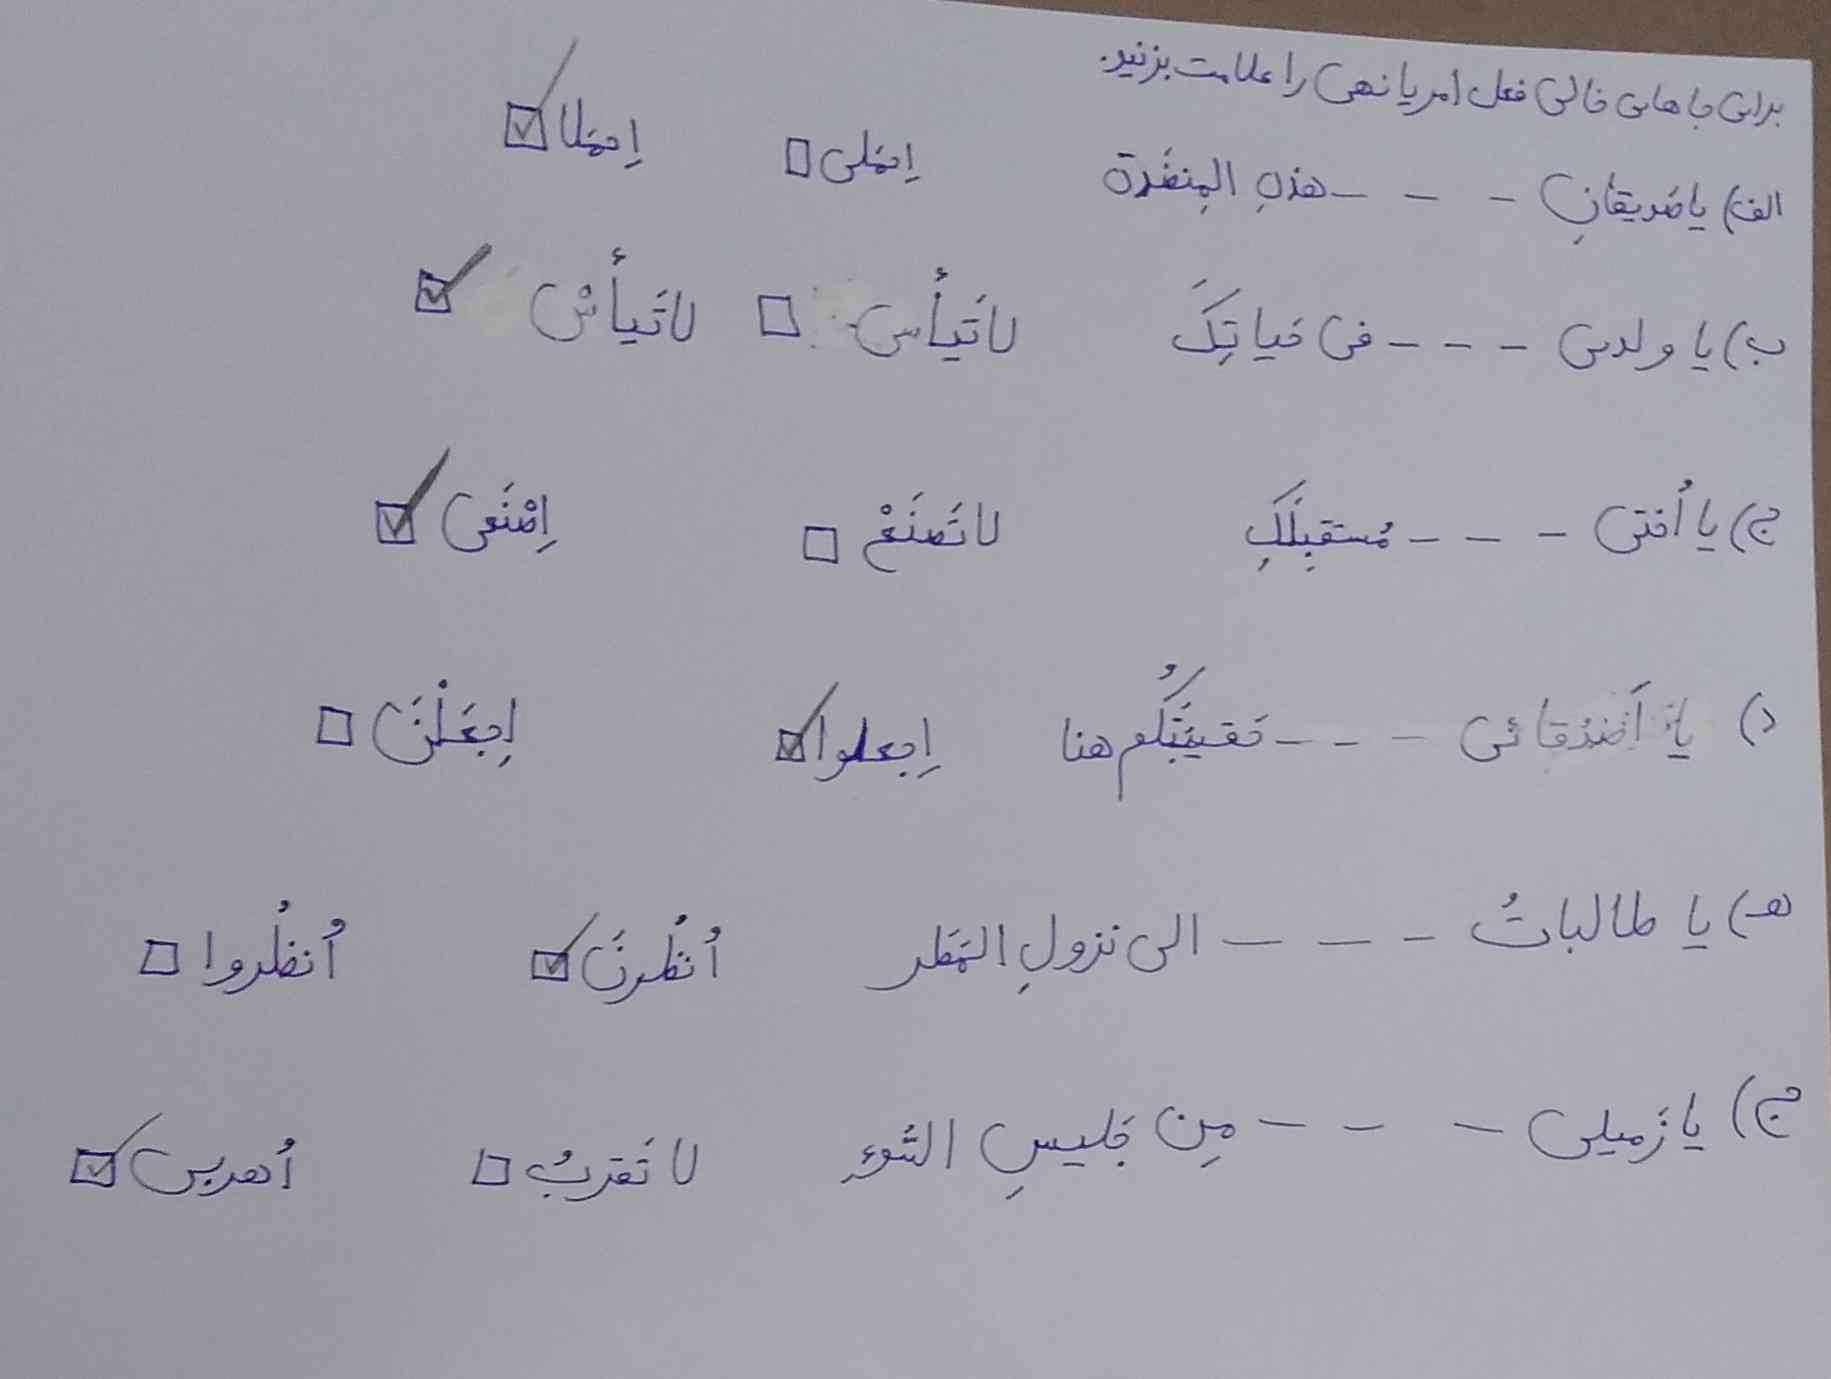 برای جاهای خالی فعل امر یا نهی را علامت بزنید.
الف) یا صَدیقانِ - - - هذهِ المِنضَدة □ اِحمَلی ☑ اِحمَلا
ب) یا ولدی - - - فی حَیاتِکَ لاتَیأُس □ لاتَیأَسْ ☑
ج) یا اُختی - - - مُستقبِلَکِ لاتَصنَعْ □ اِصْنَعی ☑
د) یا أَصْدُقائی - - - حَقیبَتَکُم هنا اِجعلوا ☑ اِجعَلْنَ □
هـ) یا طالباتُ - - - الی نزولِ المَطَر اُنظُرنَ ☑ اُنظُروا □
ج) یا زَمیلی - - - مِن جَلیسِ السَّوءِ لا تَقربُ □ اُهربی ☑